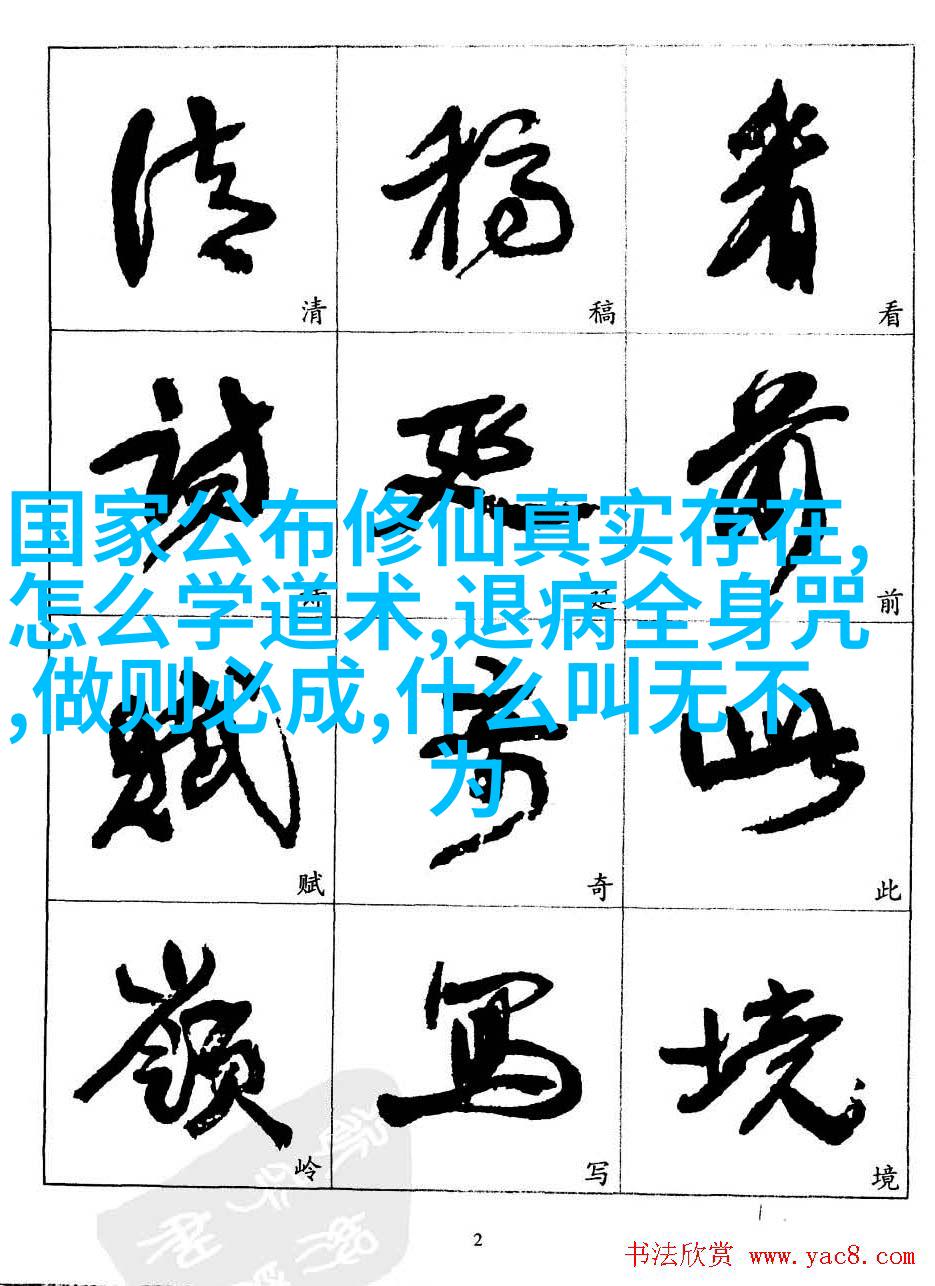 清 稿 看
诗 廷 前
国家公布修仙真实存在,
怎么学道术,退病全身咒
,做则必成,什么叫无不
为
赋 奇 此
岭 写 境
2
书法欣赏 www.yac8.com